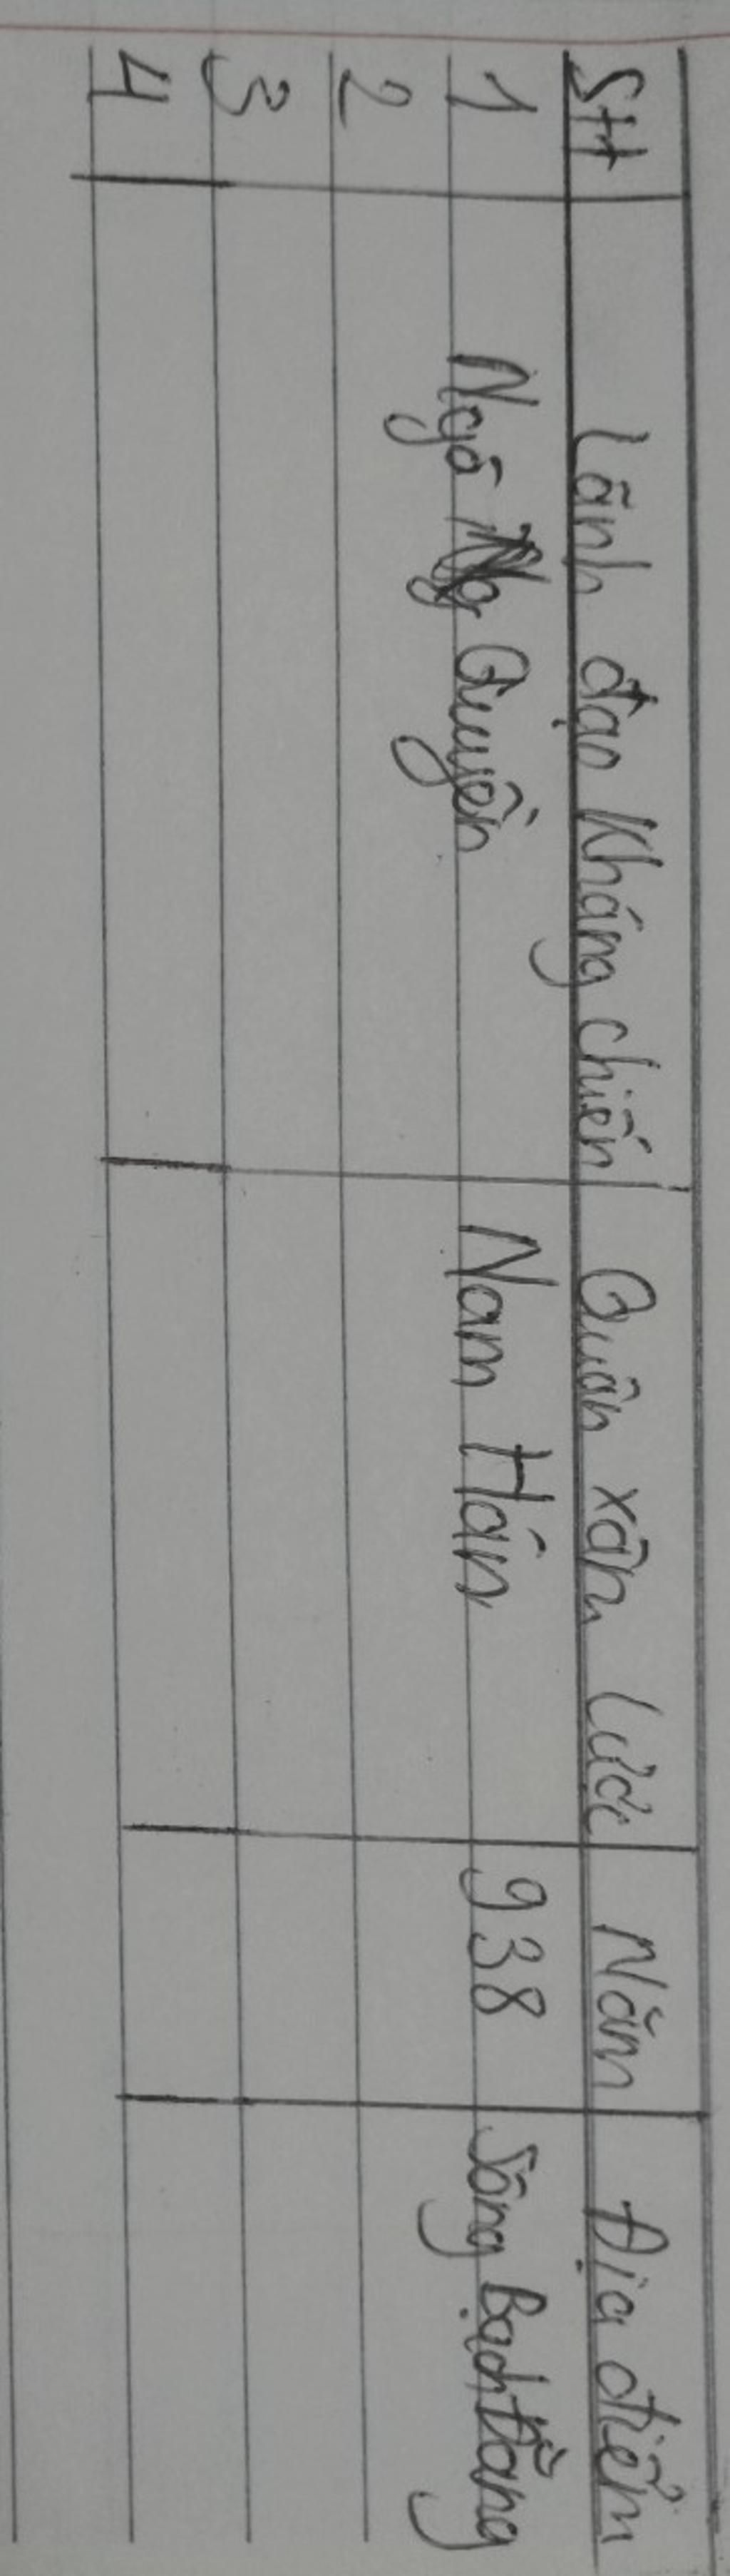 Stt Lãnh đạo kháng chiến Quân xâm lược Năm Địa điểm
1 Ngô Quyền Nam Hán 938 Sông Bạch Đằng
2
3
4